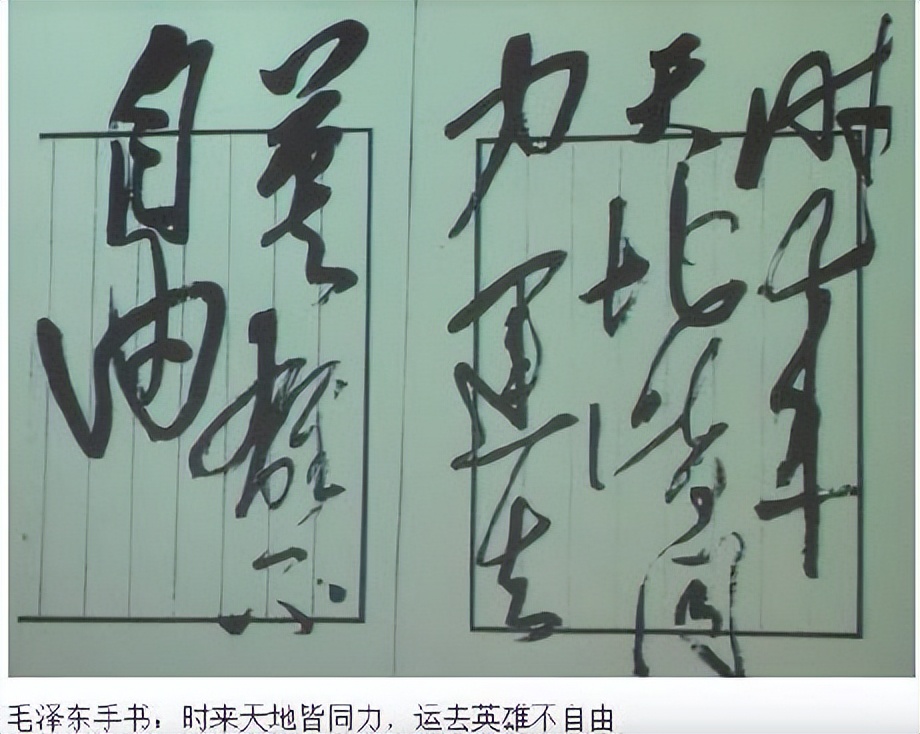 时来
天地皆同
力运去
英雄不
自由
毛泽东手书：时来天地皆同力，运去英雄不自由